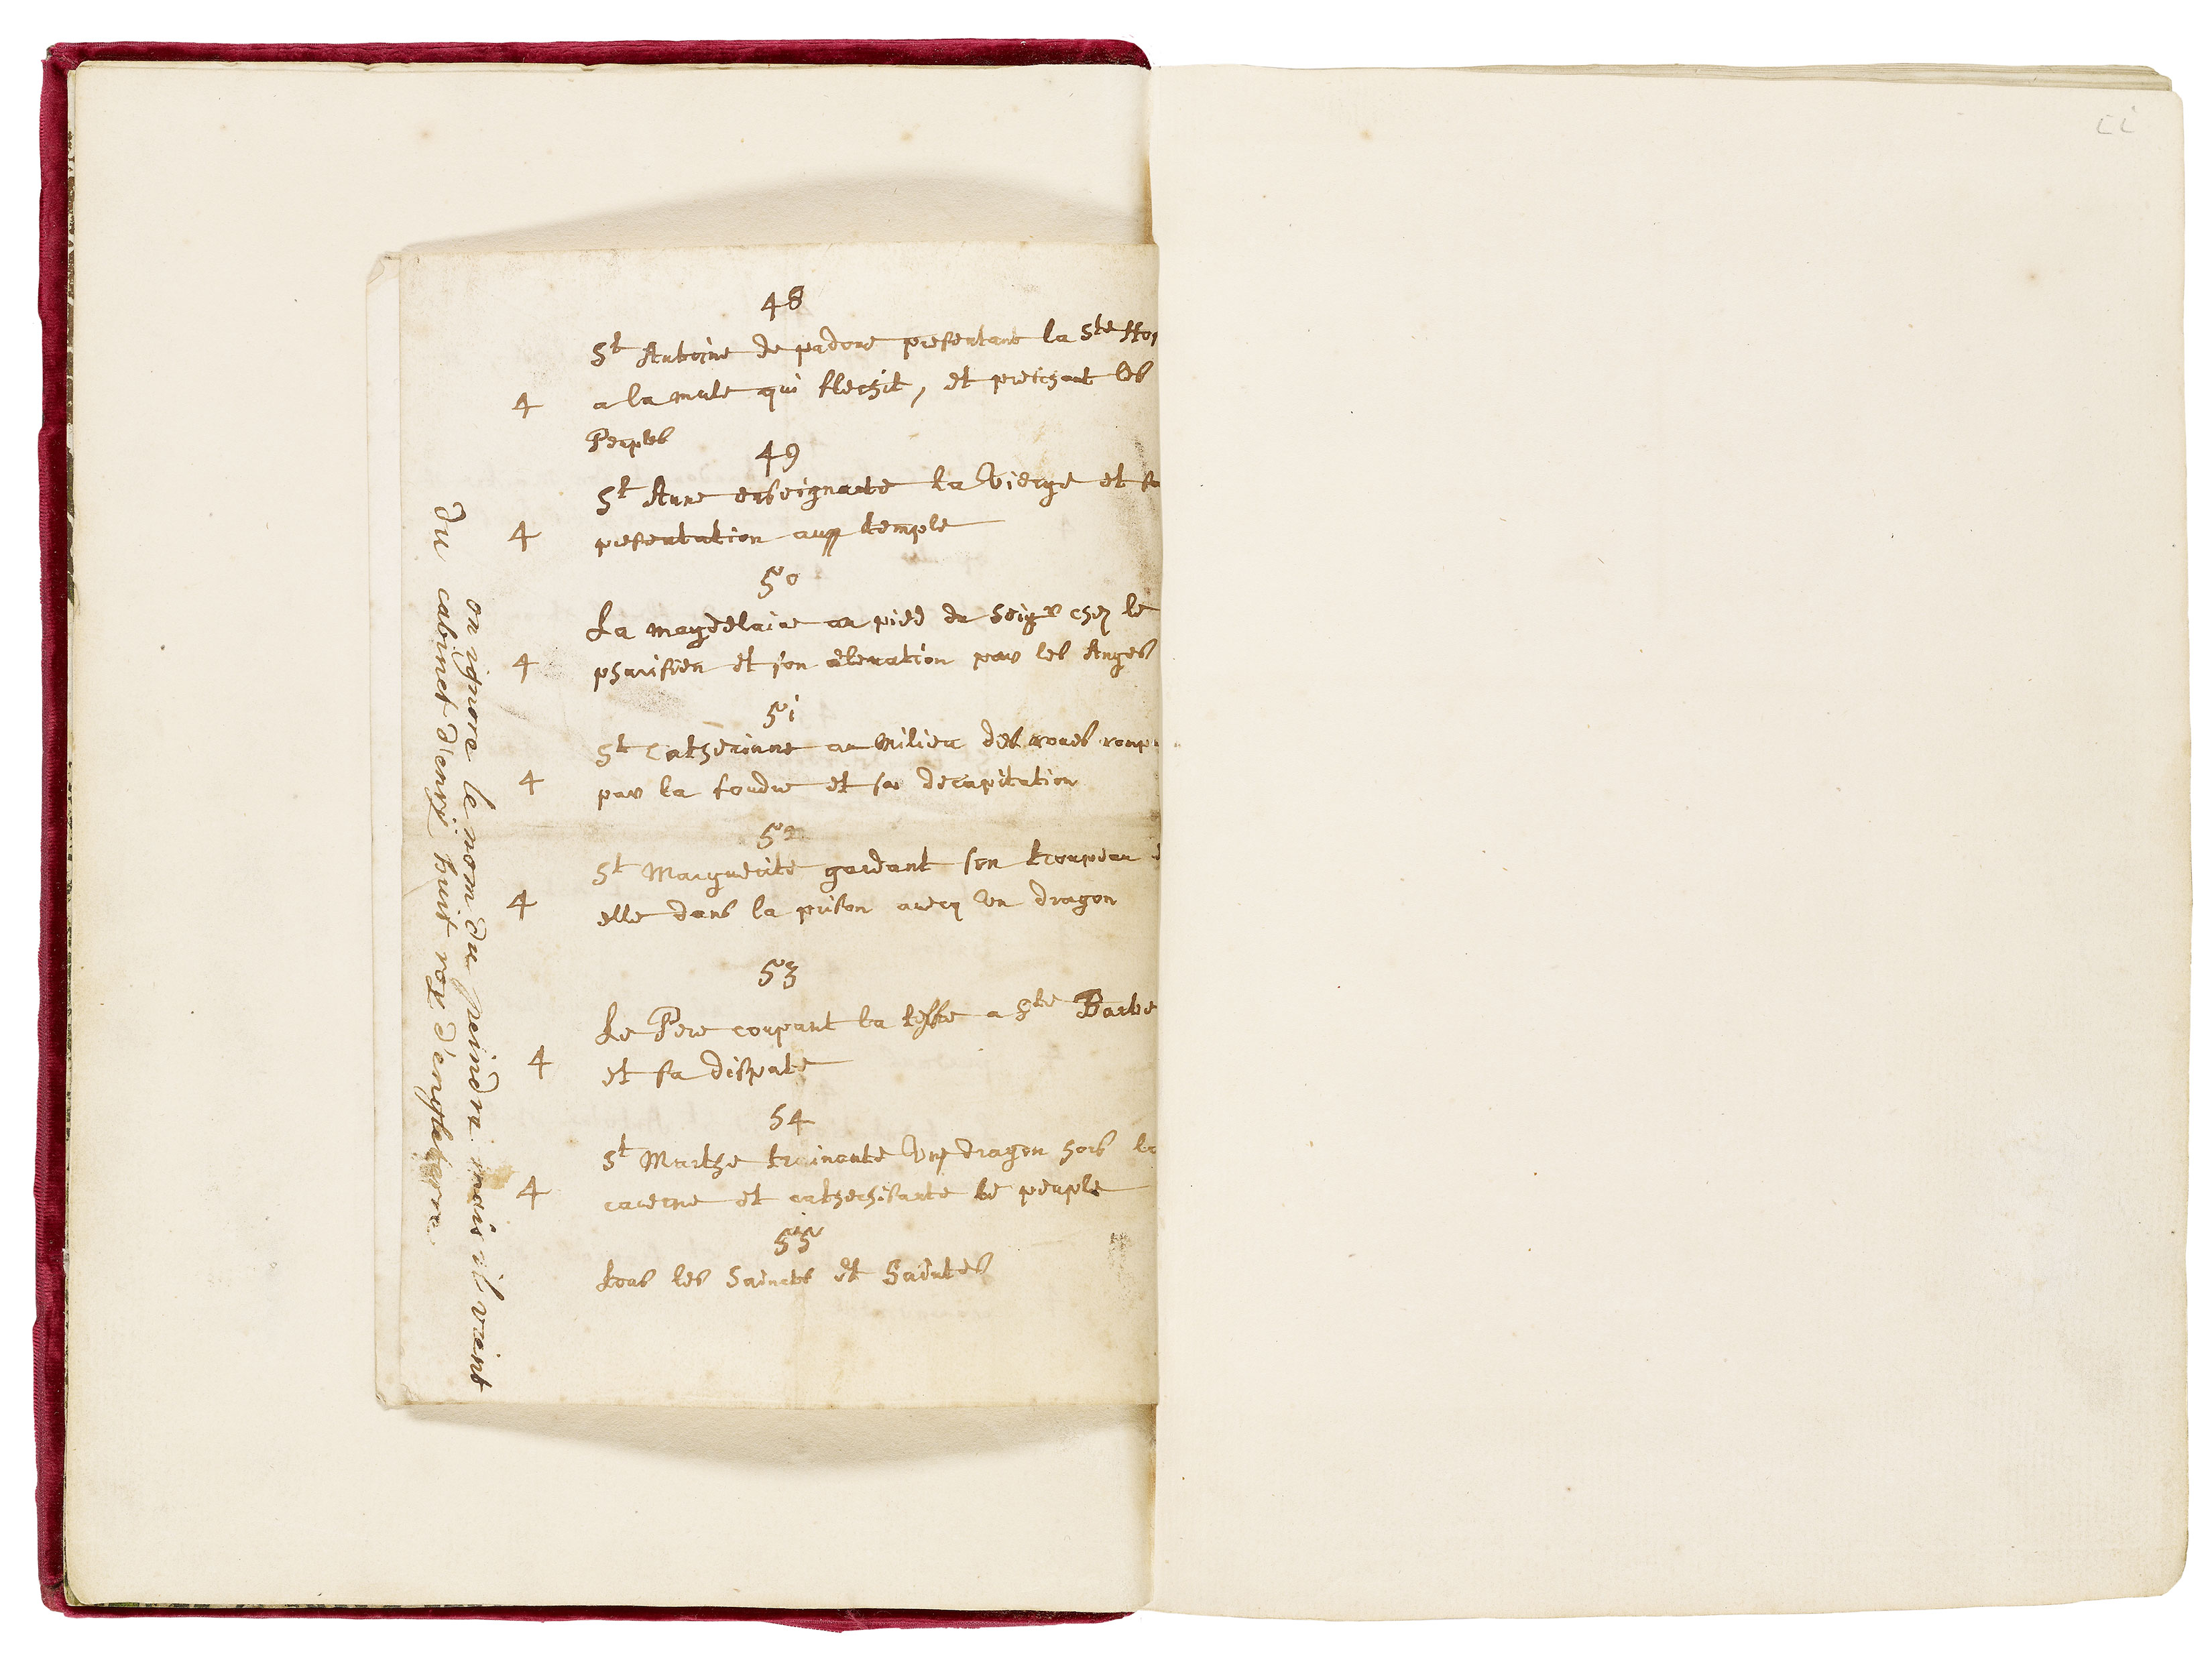 48
St Antoine de padoue presentant la Ste Hos
4 a la mule qui flechit, et preschant les
Peuples
49
St Anne enseignante la Vierge et sa
4 presentation au temple
50
La magdelaine au pied du Seigr chez le
4 pharisien et son elevation par les Anges
51
St Catherinne au Milieu des roues romp
4 par la foudre et sa decapitation
52
St Marguerite gardant son troupeau
4 elle dans la prison avecq un dragon
53
Le Pere coupant la teste a Ste Barbe
4 et sa dispute
54
St Marthe trainante un dragon hors la
4 caverne et cathechisante le peuple
55
tous les Saincts et Saintes
on ignore le nom du peindre mais il vient
du cabinet d'enrÿ huit roÿ d'engleterre